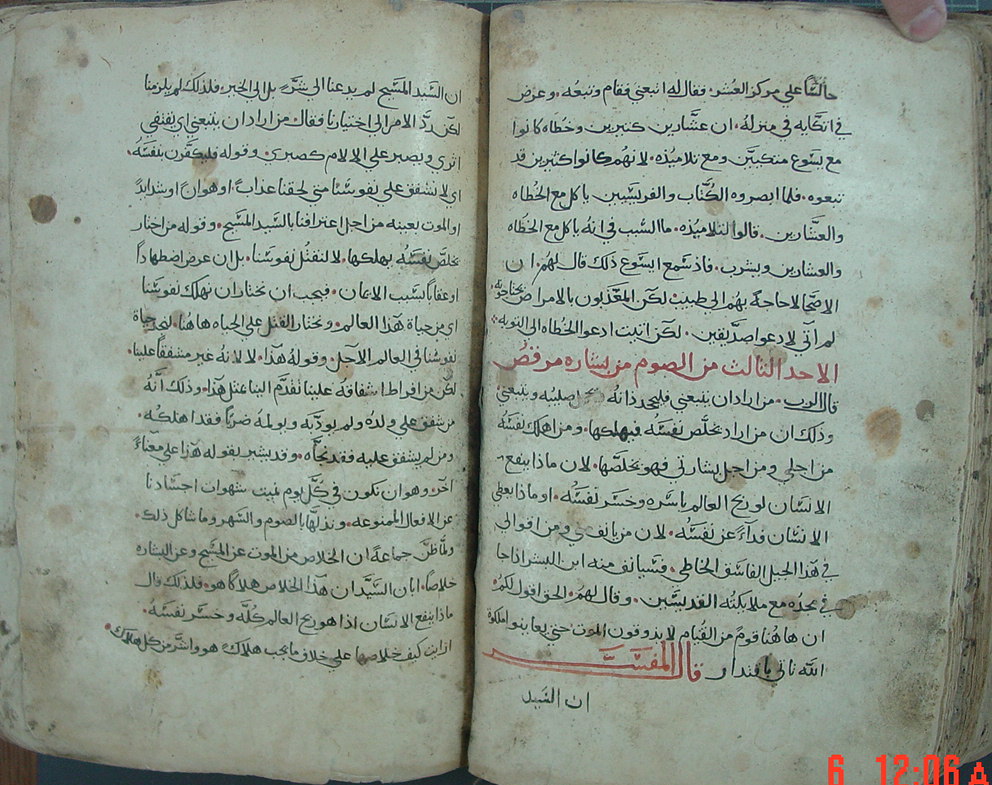 جالسًا علي مركز العشر. فقال له اتبعني فقام وتبعه. وعرض
في اتكايه في منزله. ان عشارين كثيرين وخطاه كانوا
مع يسوع متكيين ومع تلاميذه. لانهم كانوا كثيرين قد
تبعوه. فلما ابصروه الكتاب والفريسيين ياكل مع الخطاه
والعشارين. قالوا لتلاميذه. ما السبب في انه ياكل مع الخطاه
والعشارين ويشرب. فاذ سمع ايسوع ذلك قال لهم. ان
الاصحا لا حاجة بهم الي طبيب لكن المعذبون بالامراض يحتاجونه
لم آتي لادعو صديقين. لكن اتيت ادعو الخطاه الي التوبه
الاحد الثالث من الصوم من بشاره مرقص
قال الرب. من اراد ان يتبعني فليجحد ذاته صليبه ويتبعني
وذلك ان من اراد يخلص نفسه فيهلكها. ومن اهلك نفسه
من اجلي ومن اجل بشارتي فهو يخلصها. لان ماذا ينفع
الانسان لو ربح العالم باسره وخسر نفسه. او ماذا يعطي
الانسان فدآءً عن نفسه. لان من يانف مني ومن اقوالي
في هذا الجيل الفاسق الخاطي. فسيانف منه ابن البشر اذا جا
في مجده مع ملايكته القديسين. وقال لهم. الحق اقول لكم.
ان هاهنا قوم من القيام لا يذوقون الموت حتي يعاينوا ملكوة
الله تاتي باقتدار قال المفسر
ان السيد
ان السيد المسيح لم يدعنا الي شر بل الي الخير. فلذلك لم يلزمنا
لكن رد الامر الي اختيارنا فقال من اراد ان يتبعني اي يقتفي
اثري ويصبر علي الالام كصبري. وقوله فليكفرن بنفسه.
اي لا يشفق علي نفوسنا متي لحقنا عذاب. او هوان او شدايد
او الموت بعينه من اجل اعترافنا بالسيد المسيح. وقوله من اختار
يخلص نفسه يهلكها. لا لنقتل نفوسنا. بل ان عرض اضطهاداً
او عقاباً بسبب الايمان. فيجب ان نختار ان نهلك نفوسنا
اي من حياة هذا العالم. ونختار القتل علي الحياه هاهنا. لنجد حياة
نفوسنا في العالم الآجل. وقوله هذا. لا لانه غير مشفقاً علينا.
لكن من افراط اشفاقه علينا تقدم الينا بمثل هذا. وذلك انه
من شفق علي ولده ولم يودبه ويولمه ضرباً فقد اهلكه.
ومن لم يشفق عليه فقد نجاه. وقد يشير بقوله هذا علي معناً
آخر. وهو ان نكون في كل يوم نميت شهوات اجسادنا
عن الافعال الممنوعه. ونذلها بالصوم والسهر وما شاكل ذلك.
ولما ظن جماعة ان الخلاص من الموت عن المسيح وعن البشاره
خلاصاً. ابان السيد ان هذا الخلاص هلاكاً هو. فلذلك قال
ماذا ينفع الانسان اذا هو ربح العالم كله وخسر نفسه.
ارايت كيف خلاصها علي خلاف ما يجب هلاك هو واشر من كل هلاك.
6 12:06 A